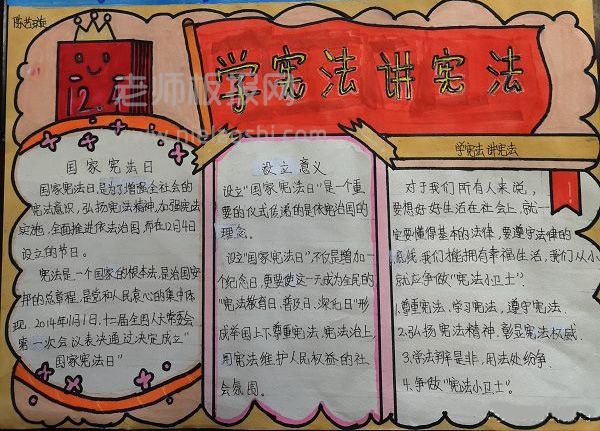 学宪法讲宪法
12.4
国家宪法日
国家宪法日,是为了增强全社会的
宪法意识,弘扬宪法精神,加强宪法
实施,全面推进依法治国,而在12月4日
设立的节日。
宪法是一个国家的根本法,是治国安
邦的总章程,是党和人民意心的集中体
现,2014年11月1日,十二届全国人大常委会
第一次会议表决通过决定成立"
国家宪法日"
设立意义
设立"国家宪法日"是一个重
要的仪式,传递的是依宪治国的
理念。
设立"国家宪法日",不仅是增加一
个纪念日,更要使这一天成为全民的
"宪法教育日、普及日、深化日"形
成举国上下尊重宪法、宪法治上,
用宪法维护人民权益的社
会氛围。
学宪法讲宪法
对于我们所有人来说,
要想好好生活在社会上,就一
定要懂得基本的法律,要遵守法律的
底线,我们才能拥有幸福生活,我们从小
就应争做"宪法小卫士"。
1.尊重宪法、学习宪法,遵守宪法.
2.弘扬宪法精神.彰显宪法权威.
3.学法辩是非.用法处纷争.
4.争做"宪法小卫士"。
老师板报网